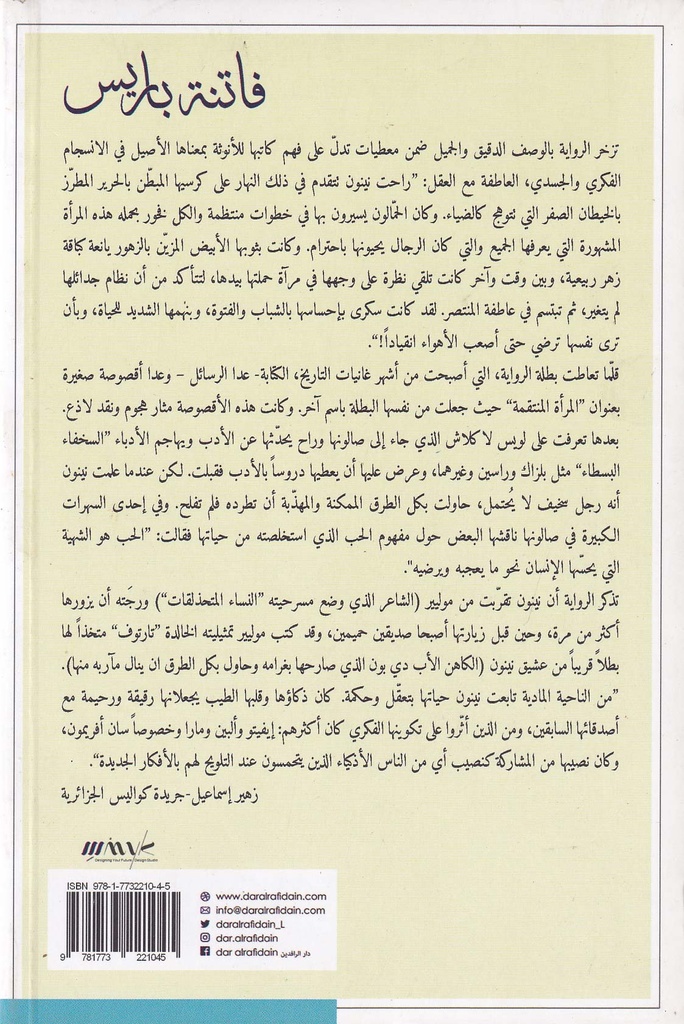 فاتنة باريس
تزخر الرواية بالوصف الدقيق والجميل ضمن معطيات تدلّ على فهم كاتبها للأنوثة بمعناها الأصيل في الانسجام
الفكري والجسدي، العاطفة مع العقل: "راحت نينون تتقدم في ذلك النهار على كرسيها المبطّن بالحرير المطرّز
بالخيطان الصفر التي تتوهج كالضياء. وكان الحمّالون يسيرون بها في خطوات منتظمة والكل فخور بحمله هذه المرأة
المشهورة التي يعرفها الجميع والتي كان الرجال يحيونها باحترام. وكانت بثوبها الأبيض المزيّن بالزهور يانعة كباقة
زهر ربيعية، وبين وقت وآخر كانت تلقي نظرة على وجهها في مرآة حملتها بيدها، لتتأكد من أن نظام جدائلها
لم يتغير، ثم تبتسم في عاطفة المنتصر. لقد كانت سكرى بإحساسها بالشباب والفتوة، وبنهمها الشديد للحياة، وبأن
ترى نفسها ترضي حتى أصعب الأهواء انقياداً!".
قلّما تعاطت بطلة الرواية، التي أصبحت من أشهر غانيات التاريخ، الكتابة- عدا الرسائل – وعدا أقصوصة صغيرة
بعنوان "المرأة المنتقمة" حيث جعلت من نفسها البطلة باسم آخر. وكانت هذه الأقصوصة مثار هجوم ونقد لاذع.
بعدها تعرفت على لويس لاكلاش الذي جاء إلى صالونها وراح يحدّثها عن الأدب ويهاجم الأدباء "السخفاء
البسطاء" مثل بلزاك وراسين وغيرهما، وعرض عليها أن يعطيها دروساً بالأدب فقبلت. لكن عندما علمت نينون
أنه رجل سخيف لا يُحتمل، حاولت بكل الطرق الممكنة والمهذّبة أن تطرده فلم تفلح. وفي إحدى السهرات
الكبيرة في صالونها ناقشها البعض حول مفهوم الحب الذي استخلصته من حياتها فقالت: "الحب هو الشهية
التي يحسّها الإنسان نحو ما يعجبه ويرضيه".
تذكر الرواية أن نينون تقرّبت من موليير (الشاعر الذي وضع مسرحيته "النساء المتحذلقات") ورجَته أن يزورها
أكثر من مرة، وحين قبل زيارتها أصبحا صديقين حميمين، وقد كتب موليير تمثيليته الخالدة "تارتوف" متخذاً لها
بطلاً قريباً من عشيق نينون (الكاهن الأب دي بون الذي صارحها بغرامه وحاول بكل الطرق ان ينال مآربه منها).
"من الناحية المادية تابعت نينون حياتها بتعقّل وحكمة. كان ذكاؤها وقلبها الطيب يجعلانها رقيقة ورحيمة مع
أصدقائها السابقين، ومن الذين أثّروا على تكوينها الفكري كان أكثرهم: إيفيتو وألبين ومارا وخصوصاً سان أفريمون،
وكان نصيبها من المشاركة كنصيب أي من الناس الأذكياء الذين يتحمسون عند التلويح لهم بالأفكار الجديدة".
زهير إسماعيل-جريدة كواليس الجزائرية
Designing Your Future Design Studio
ISBN 978-1-7732210-4-5
9 781773 221045
www.daralrafidain.com
info@daralrafidain.com
daralrafidain_L
dar.alrafidain
dar alrafidain دار الرافدين